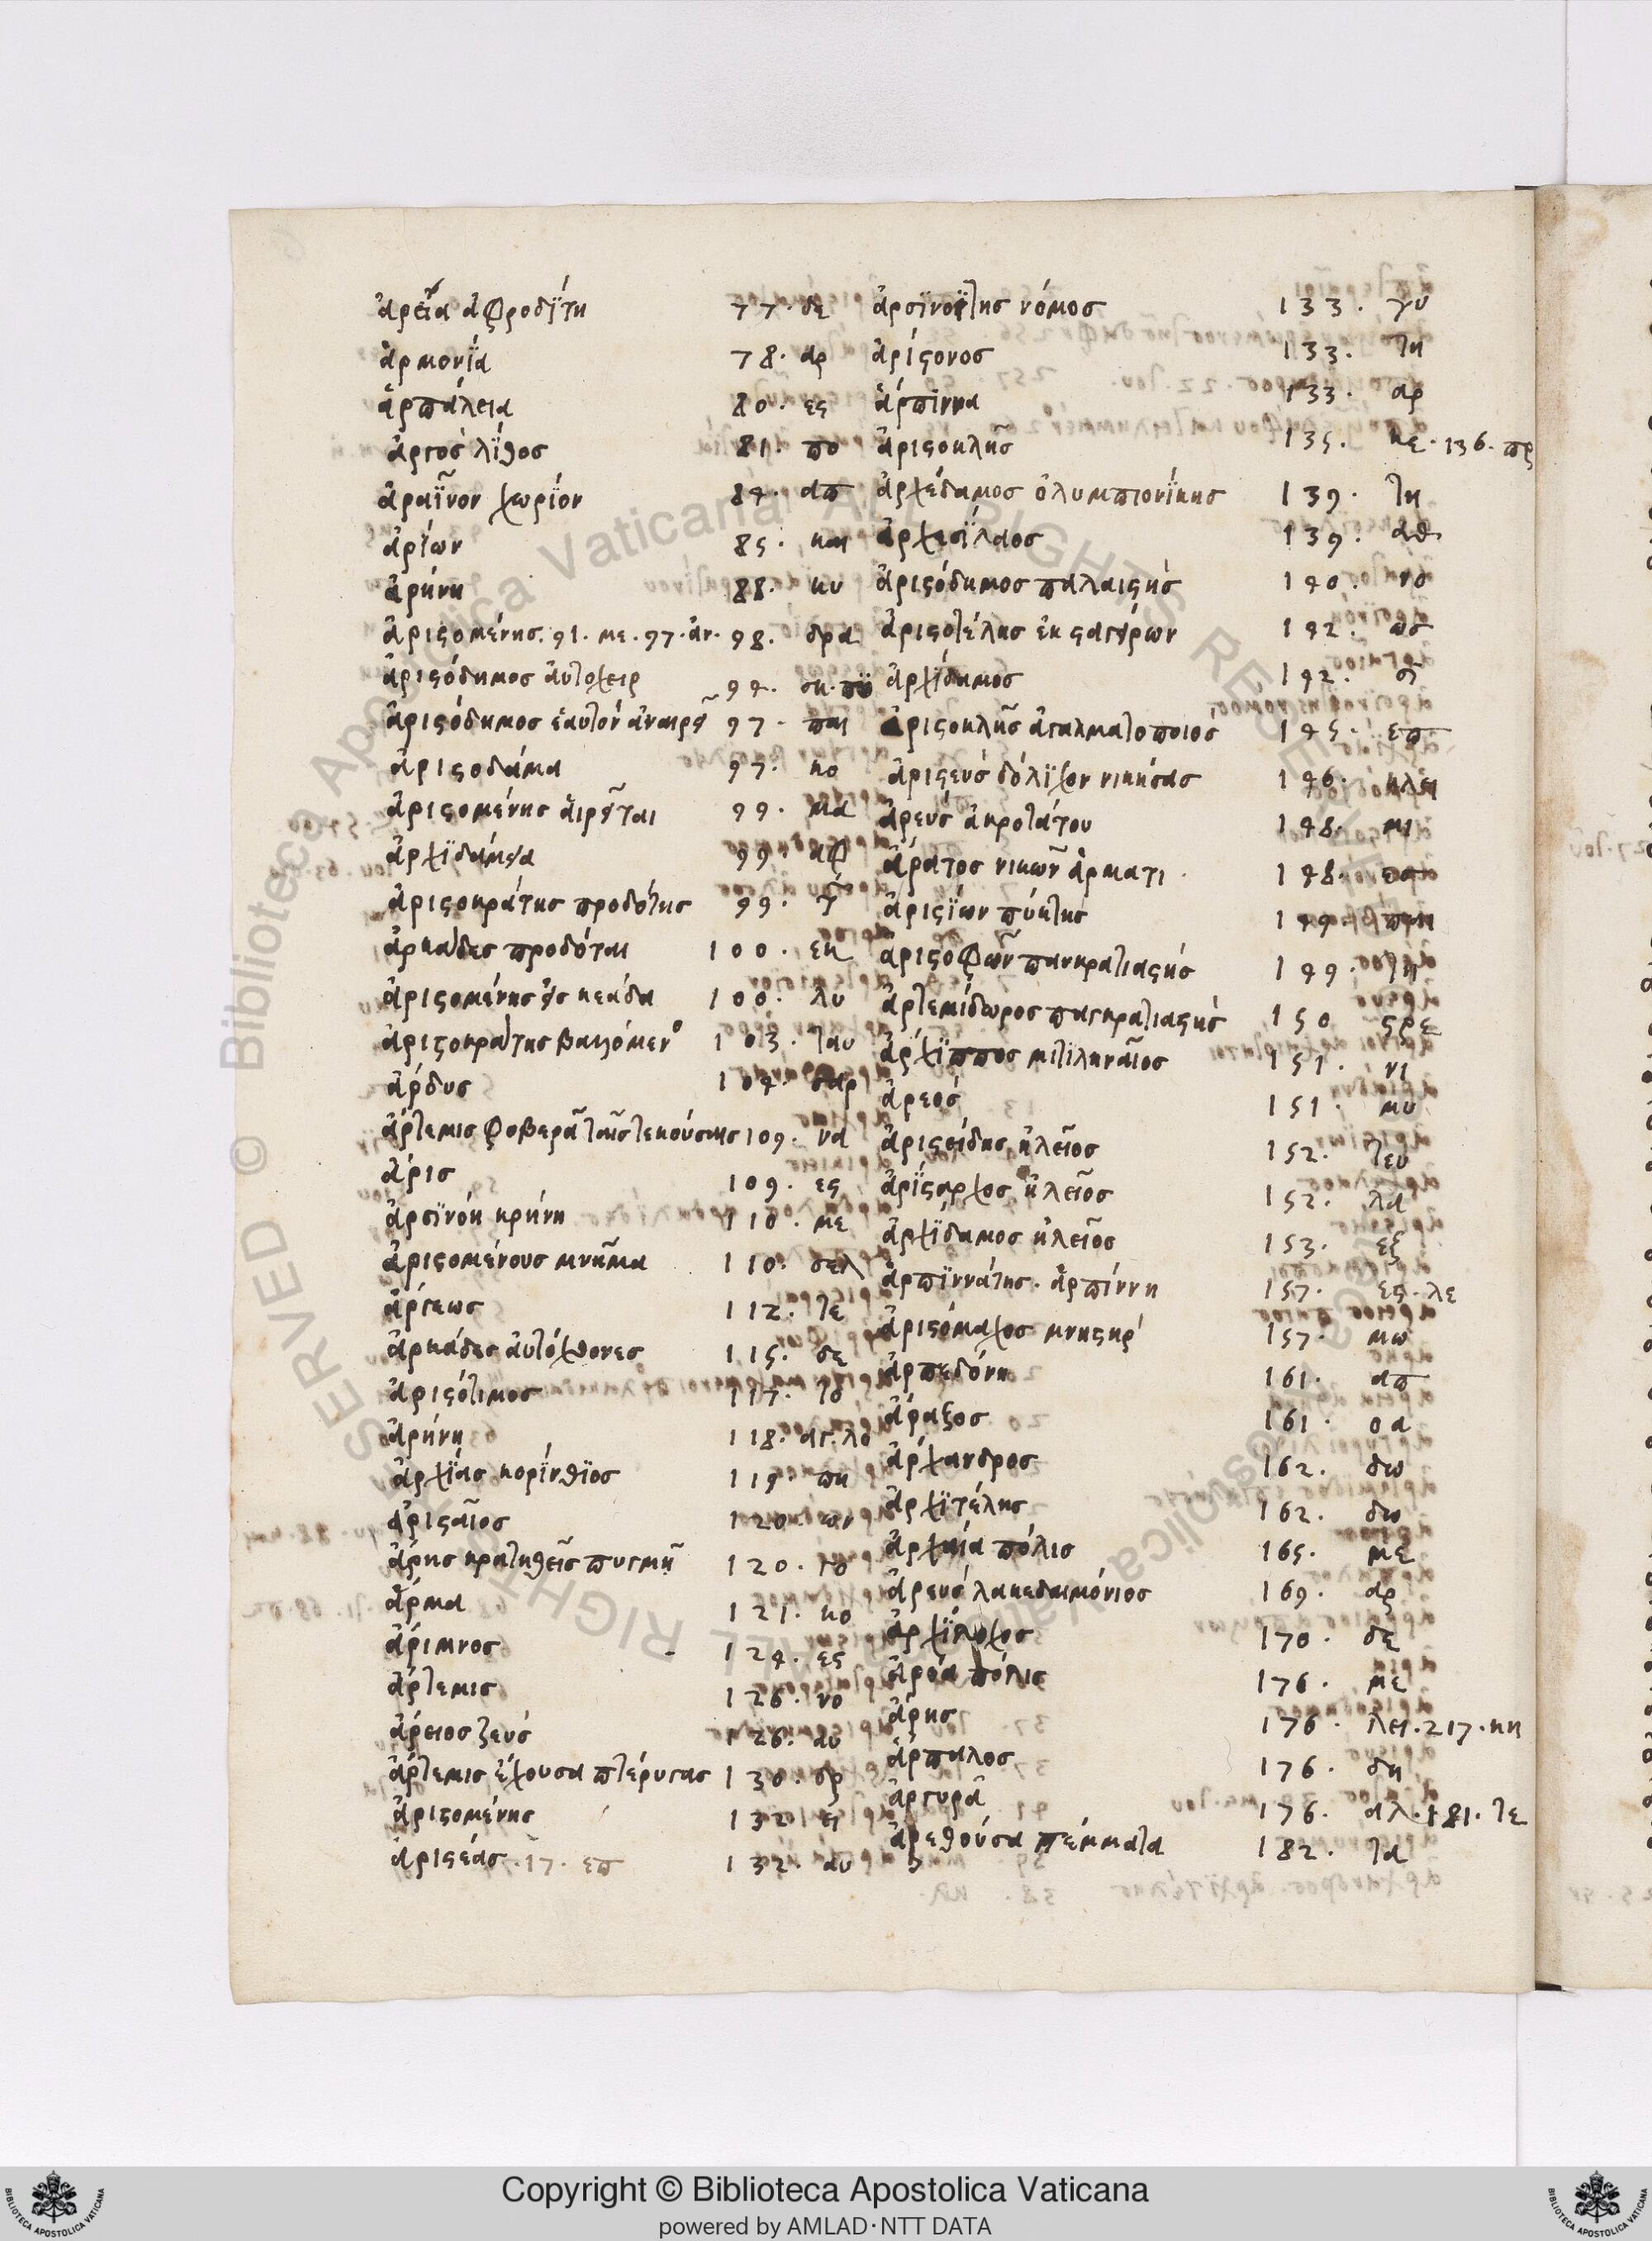 ἀρεία ἀφροδίτη 77. δε
ἁρμονία 78. αρ
ἁρπάλεια 80. ες
ἀργὸς λίθος 81. πο
ἀραῖνον χωρίον 84. απ
ἀρίων 85. και
ἀρήνη 88. κυ
ἀριστομένης. 91. με. 97. ἀν. 98. δρα
ἀριστόδημος αὐτόχειρ 94. ση.
ἀριστόδημος ἑαυτὸν ἀναιρεῖ 97. παι
ἀριστοδάμα 97. κο
ἀριστομένης αἱρεῖται 99. μα
ἀρχιδάμεια 99. αφ
ἀριστοκράτης προδότης 99.
ἀρκάδες προδόται 100. εκ
ἀριστομένης εἰς κεάδα 100. λυ
ἀριστοκράτης βαλλόμενο 103. ταυ
ἄρδυς 104. σαρ
ἄρτεμις φοβερὰ ταῖς τεκούσαις 109. να
ἄρις 109. ες
ἀρσινόη κρήνη 110. με
ἀριστομένους μνῆμα 110. σελ
ἄργεως 112. τε
ἀρκάδες αὐτόχθονες 115. δε
ἀριστότιμος 117. το
ἀρήνη 118. αγ. λο
ἀρχίας κορίνθιος 119. πη
ἀρισταῖος 120. ων
ἄρης κρατηθεὶς πυγμῇ 120. το
ἅρμα 121. κο
ἄριμνος 124. ες
ἄρτεμις 126. νο
ἄρειος ζεύς 126. αυ
ἄρτεμις ἔχουσα πτέρυγας 130. ορ
ἀριστομένης 132. ει
ἀριστέας. 17. επ 132. αυ
ἀρσινοΐτης νόμος 133. γυ
ἀρίστονος 133. τη
ἁρπίννα 133. αρ
ἀριστοκλῆς 135. κε. 136. πρ
ἀρχέδαμος ὀλυμπιονίκης 139. τη
ἀρχεσίλαος 139. αθ
ἀριστόδημος παλαιστής 140. νο
ἀριστοτέλης ἐκ σταγύρων 142. ως
ἀρχίδημος 142.
ἀριστοκλῆς ἀγαλματοποιος 145. επ
ἀριστεύς δόλιχον νικήσας 146. κλει
ἀρεύς ἀκροτάτου 148. μι
ἄρατος νικῶν ἅρματι 148. εσ
ἀριστίων πύκτης 149. πρη
ἀριστοφῶν πανκρατιαστής 149. τη
ἀρτεμίδωρος παγκρατιαστής 150 στρε
ἄρχιππος μιτιληναῖος 151. νι
ἀρεός 151. μυ
ἀριστείδης ἠλεῖος 152. τευ
ἀρίσταρχος ἠλεῖος 152. λα
ἀρχίδαμος ἠλεῖος 153. εξ
ἁρπιννάτης. ἁρπίννη 157. ες. λε
ἀριστόμαχος μνηστήρ 157. μω
ἁρπεδόνη 161. απ
ἄραξος 161. οα
ἄρχανδρος 162. δω
ἀρχιτέλης 162. δω
ἀρχαία πόλις 165. με
ἀρεύς λακεδαιμόνιος 169. αρ
ἀρχίλοχος 170. δε
ἀρόα πόλις 176. με
ἄρης 176. λει. 217. κη
ἅρπαλος 176. δη
ἀργυρᾶ 176. αλ. 181. τε
ἀρεθούσα πέμματα 182. τα